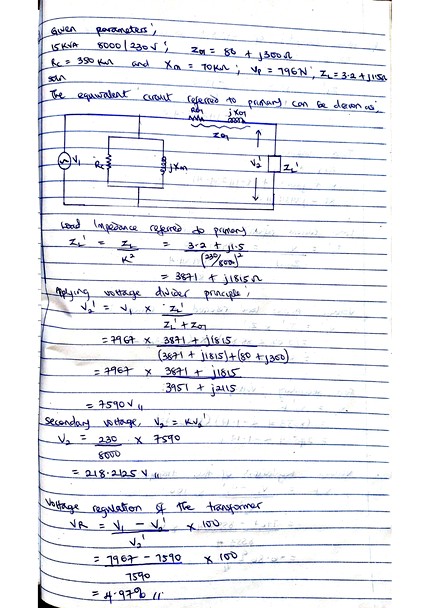 Given parameters;
15KVA 8000/230V; Z01 = 80 + j300Ω
Rc = 350KΩ and Xm = 70KΩ; Vp = 7967V, ZL = 3.2 + j1.5Ω
soln
The equivalent circuit referred to primary can be drawn as
R01 jX01
Z01
V1 Rc jXm V2' ZL'
Load Impedance referred to primary;
ZL' = ZL / K² = 3.2 + j1.5 / (230/8000)²
= 3871 + j1815Ω
Applying voltage divider principle;
V2' = V1 × ZL' / ZL' + Z01
= 7967 × 3871 + j1815 / (3871 + j1815) + (80 + j300)
= 7967 × 3871 + j1815 / 3951 + j2115
= 7590V
Secondary voltage, V2 = KV2'
V2 = 230 / 8000 × 7590
= 218.2125 V
Voltage regulation of the transformer
VR = V1 - V2' / V2' × 100
= 7967 - 7590 / 7590 × 100
= 4.97%